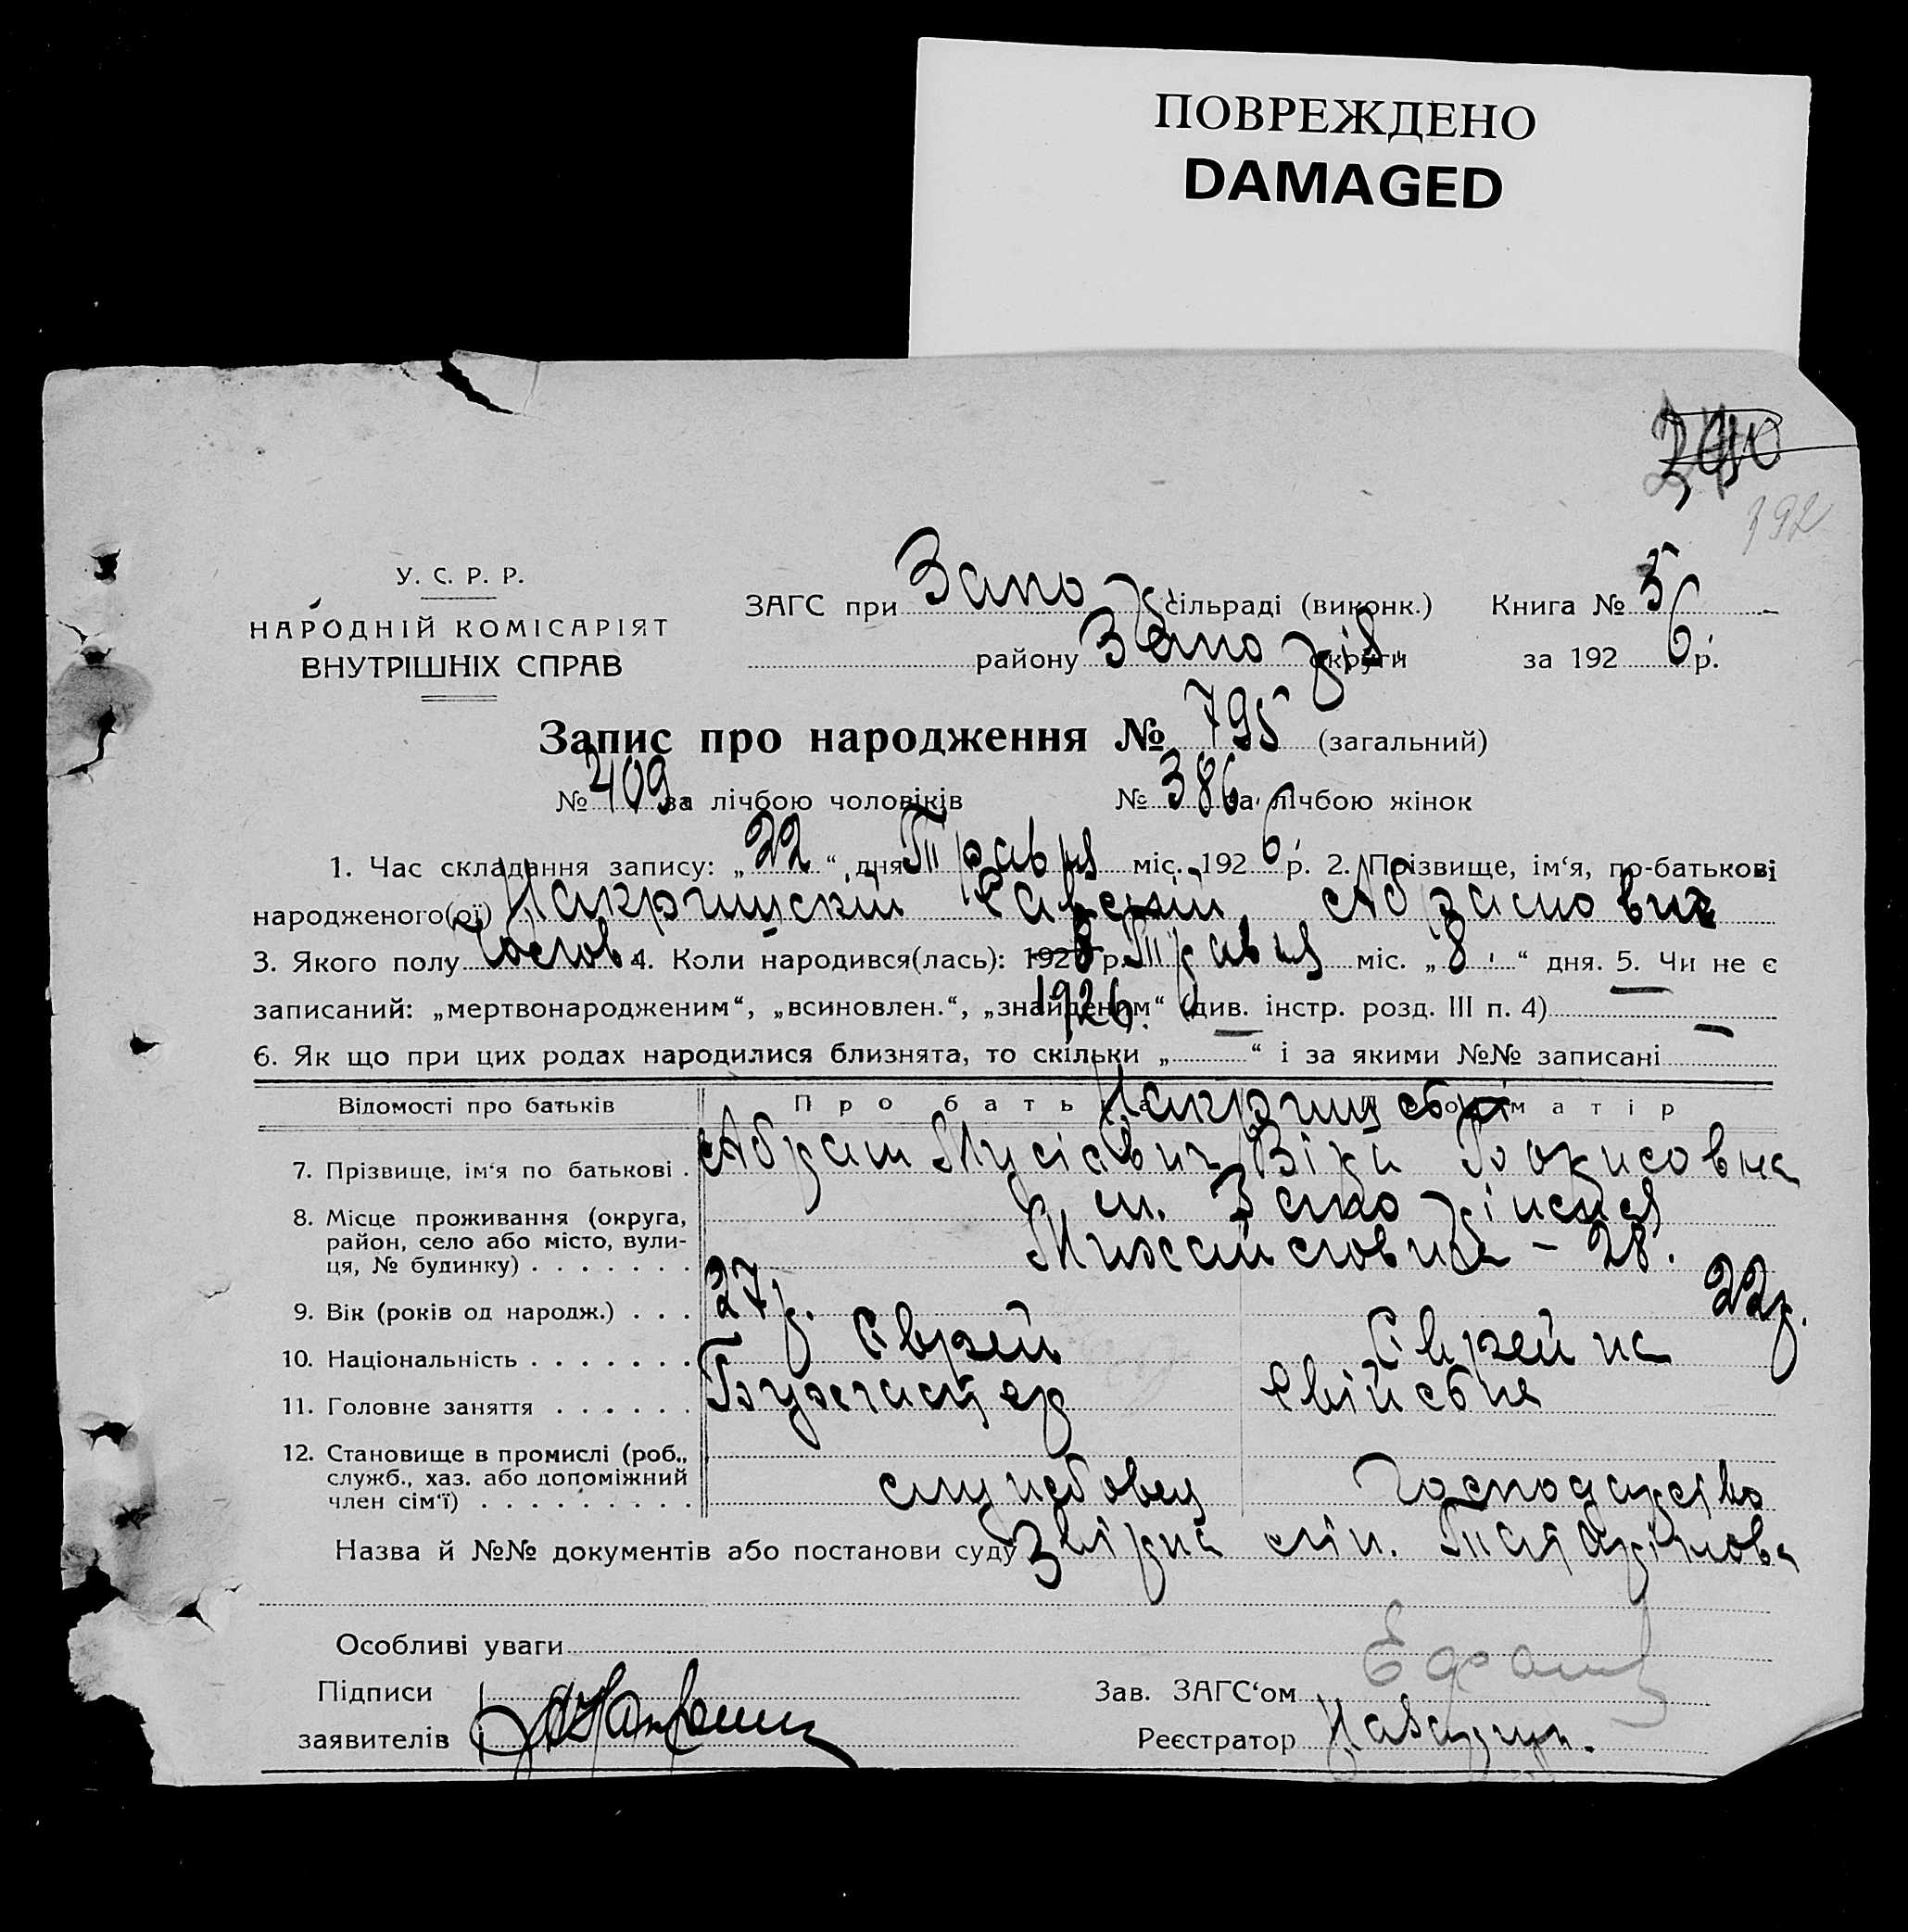 ПОВРЕЖДЕНО
DAMAGED
392
У. С. Р. Р.
НАРОДНІЙ КОМІСАРІЯТ
ВНУТРІШНІХ СПРАВ
ЗАГС при Запо сільраді (виконк.) Книга № 5
району Запоріз. округи за 192 6 р.
Запис про народження № 795 (загальний)
№ 409 за лічбою чоловіків № 386 за лічбою жінок
1. Час складання запису: „ 22 “ дня Травня міс. 192 6 р. 2. Прізвище, ім‘я, по-батькові
народженого(ої) Абрамович
3. Якого полу чолов 4. Коли народився(лась): 192 р. Травня міс. „ 8 “ дня. 5. Чи не є
1926.
записаний: „мертвонародженим“, „всиновлен.“, „знайденим“ (див. інстр. розд. III п. 4) —
6. Як що при цих родах народилися близнята, то скільки „ — “ і за якими №№ записані —
Відомості про батьків Про батька Про матір
7. Прізвище, ім‘я по батькові . Абрам Мусієвич Віра
8. Місце проживання (округа, район, село або місто, вулиця, № будинку) . . . . . . . м. Запоріжжя
Михайловська – 28.
9. Вік (років од народж.) . . . 27 р. 22 р.
10. Національність . . . . . . . Єврей Єврейка
11. Головне заняття . . . . . . Бухгалтер Хвійське
12. Становище в промислі (роб., служб., хаз. або допоміжний член сім‘ї) . . . . . . . . . службовец господарство
Назва й №№ документів або постанови суду Звірна
Особливі уваги
Підписи
заявителів
Зав. ЗАГС‘ом
Реєстратор